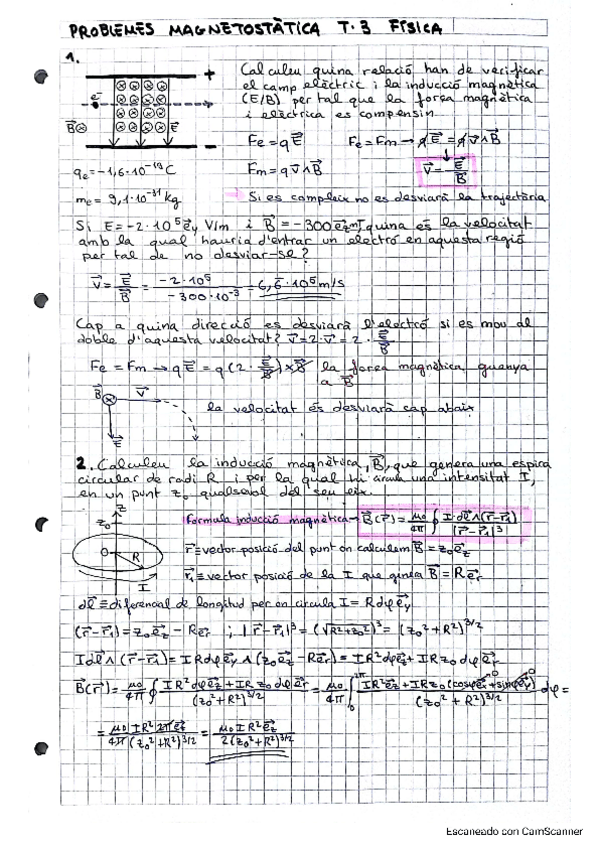 PROBLEMES MAGNETOSTÀTICA T.3 FÍSICA
1.
Calculeu quina relació han de verificar
el camp elèctric i la inducció magnètica
(E/B) per tal que la força magnètica
i elèctrica es compensin.
+
e⁻
B⃗⊗
E⃗
Fe = qE⃗ Fe = Fm → qE⃗ = qv⃗∧B⃗
qe = -1,6·10⁻¹⁹C
Fm = qv⃗∧B⃗ v⃗ = E⃗/B⃗
me = 9,1·10⁻³¹ kg
→ Si es compleix no es desviarà la trajectòria
Si E = -2·10⁵e⃗y V/m i B⃗ = -300e⃗z mT, quina és la velocitat
amb la qual hauria d'entrar un electró en aquesta regió
per tal de no desviar-se?
v⃗ = E⃗/B⃗ = -2·10⁵/-300·10⁻³ = 6,6·10⁵ m/s
Cap a quina direcció es desviarà l'electró si es mou al
doble d'aquesta velocitat? v⃗ = 2·v⃗ = 2·E⃗/B⃗
Fe = Fm → qE⃗ = q(2·E⃗/B⃗)×B⃗ la força magnètica guanya
a B⃗
B⃗ ⊗ v⃗
la velocitat és desviarà cap abaix
E⃗
2. Calculeu la inducció magnètica, B⃗, que genera una espira
circular de radi R i per la qual hi circula una intensitat I,
en un punt z₀ qualsevol del seu eix.
z
z₀
Fórmula inducció magnètica → B⃗(r⃗) = μ₀/4π ∮ I·dl⃗∧(r⃗-r⃗₁)/|r⃗-r⃗₁|³
O R
r⃗ ≡ vector posició del punt on calculam B⃗ = z₀e⃗z
I
r⃗₁ ≡ vector posició de la I que genera B⃗ = Re⃗r
dl⃗ ≡ diferencial de longitud per on circula I = Rdφe⃗φ
(r⃗-r⃗₁) = z₀e⃗z - Re⃗r ; |r⃗-r⃗₁|³ = (√R²+z₀²)³ = (z₀²+R²)^3/2
Idl⃗∧(r⃗-r⃗₁) = IRdφe⃗φ∧(z₀e⃗z-Re⃗r) = IR²dφe⃗z + IRz₀dφe⃗r
B⃗(r⃗) = μ₀/4π ∮ IR²dφe⃗z + IRz₀dφe⃗r/(z₀²+R²)^3/2 = μ₀/4π ∫₀^2π IR²e⃗z + IRz₀(cosφe⃗x+sinφe⃗y)/(z₀²+R²)^3/2 dφ =
= μ₀/4π IR²2πe⃗z/(z₀²+R²)^3/2 = μ₀IR²e⃗z/2(z₀²+R²)^3/2
Escaneado con CamScanner